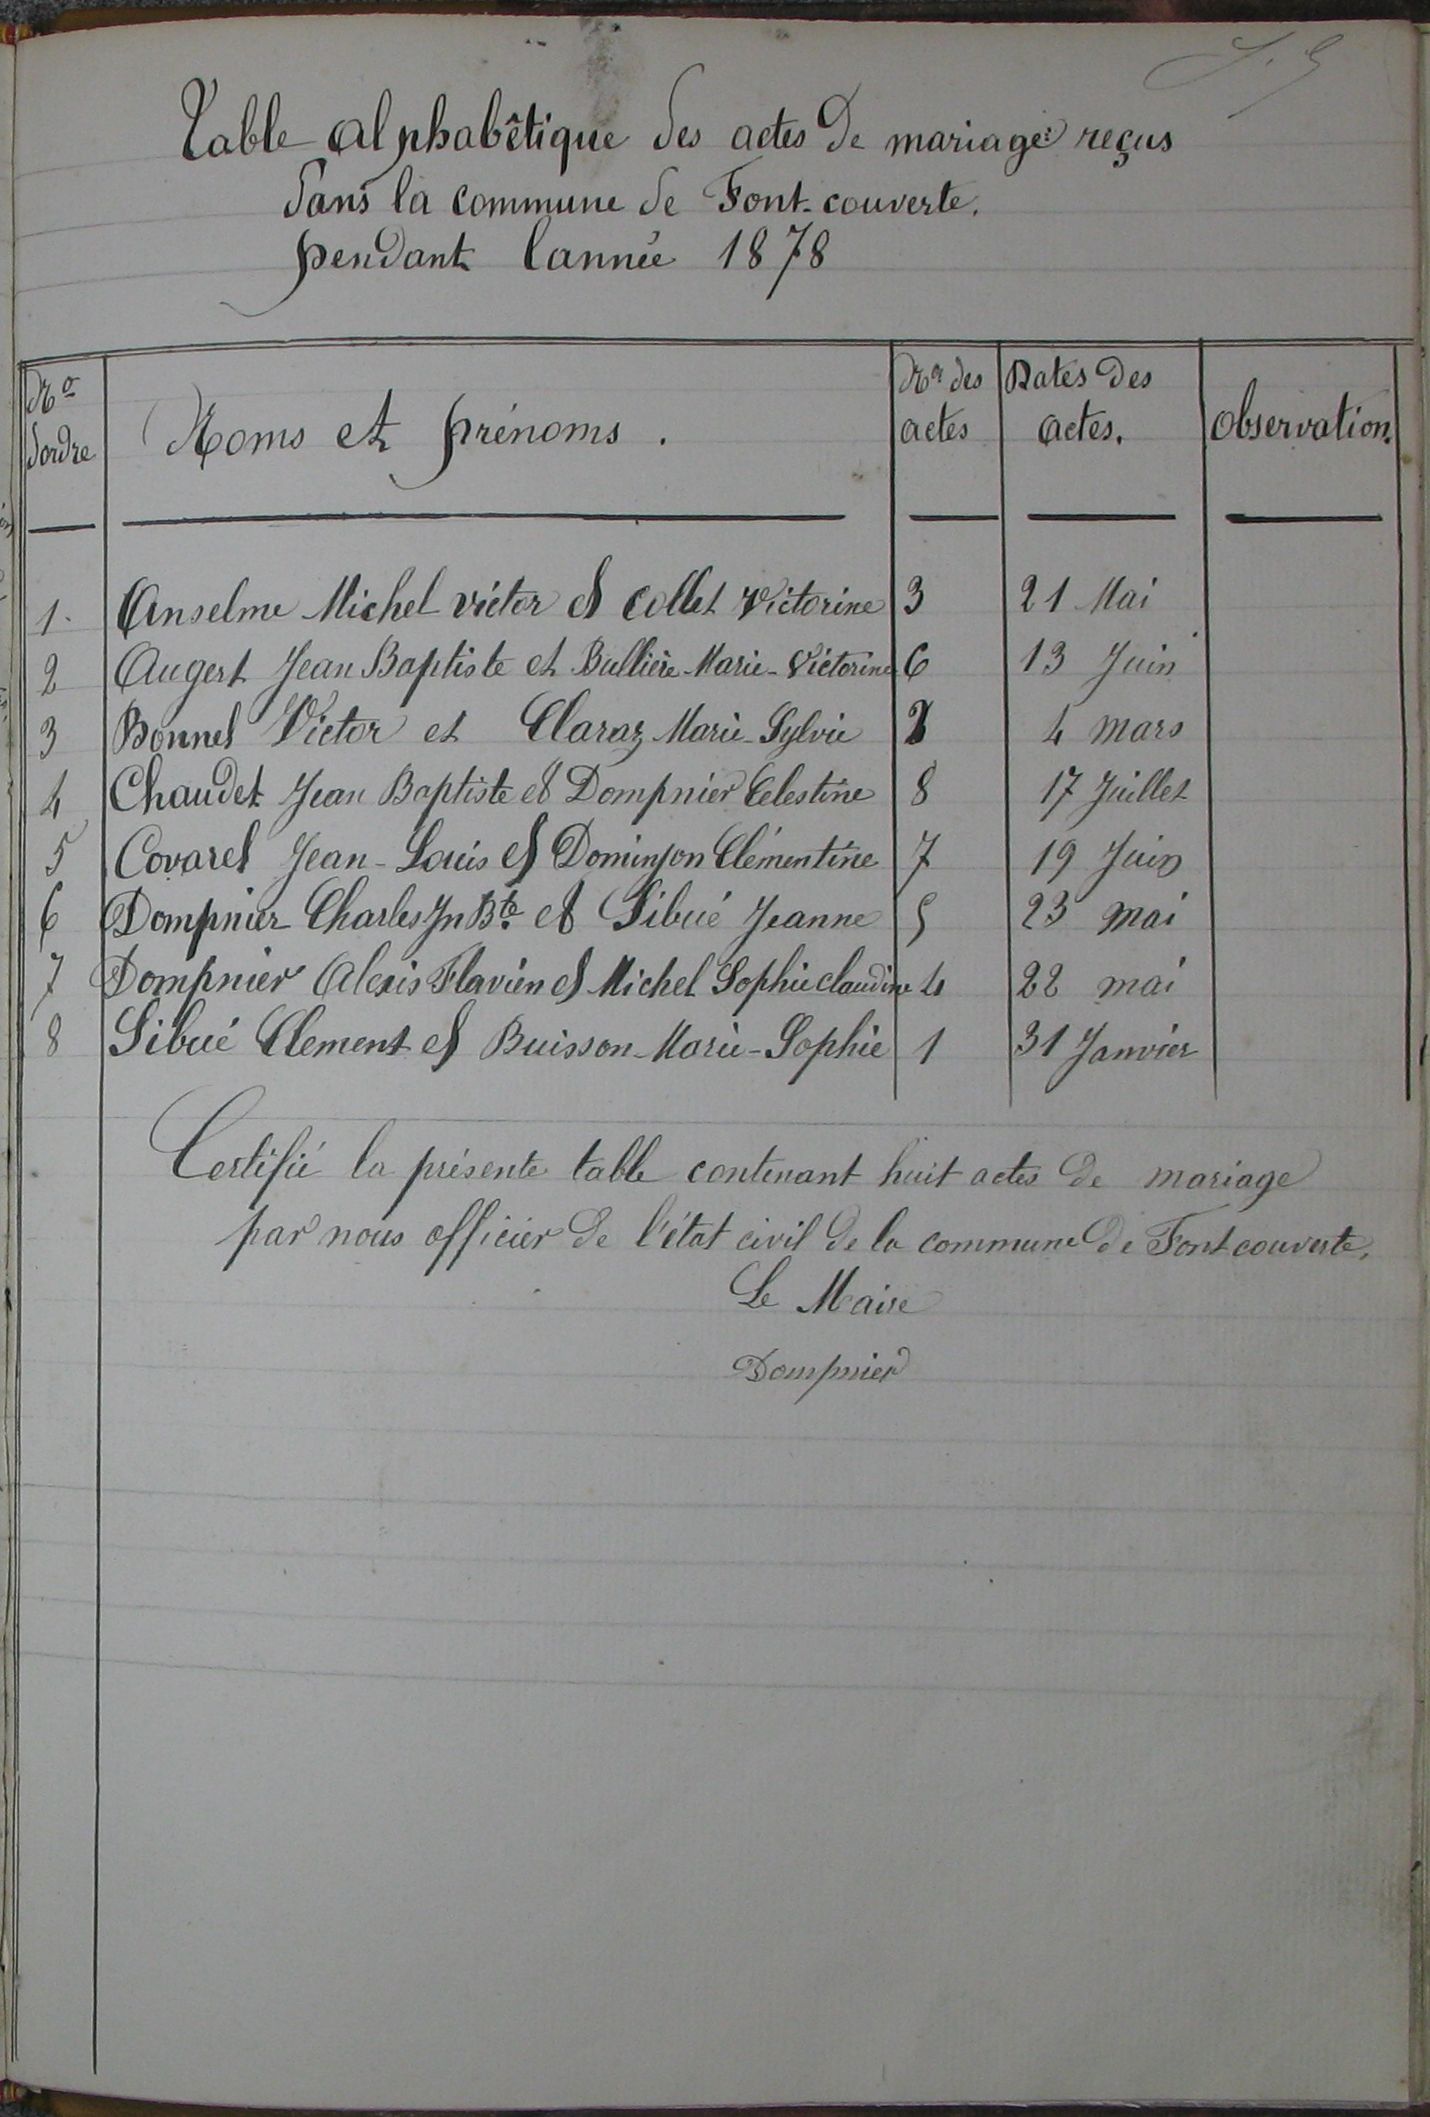 Table Alphabêtique des actes de mariage reçus
dans la commune de Font-couverte.
pendant l'année 1878
No dordre Noms et prénoms. Nos des actes Dates des actes. Observation.
1. Anselme Michel victor et Collet Victorine 3 21 Mai
2 Augert Jean Baptiste et Bullière Marie-Victorine 6 13 Juin
3 Bonnel Victor et Claraz Marie-Sylvie 2 4 mars
4 Chaudet Jean Baptiste et Dompnier Celestine 8 17 Juillet
5 Covarel Jean-Louis et Dominjon Clémentine 7 19 Juin
6 Dompnier Charles Jn Bte et Sibué Jeanne 5 23 mai
7 Dompnier Alexis Flavien et Michel Sophie claudine 4 22 mai
8 Sibué Clement et Buisson-Marie-Sophie 1 31 Janvier
Certifié la présente table contenant huit actes de mariage
par nous officier de l'état civil de la commune de Font couverte.
Le Maire
Dompnier